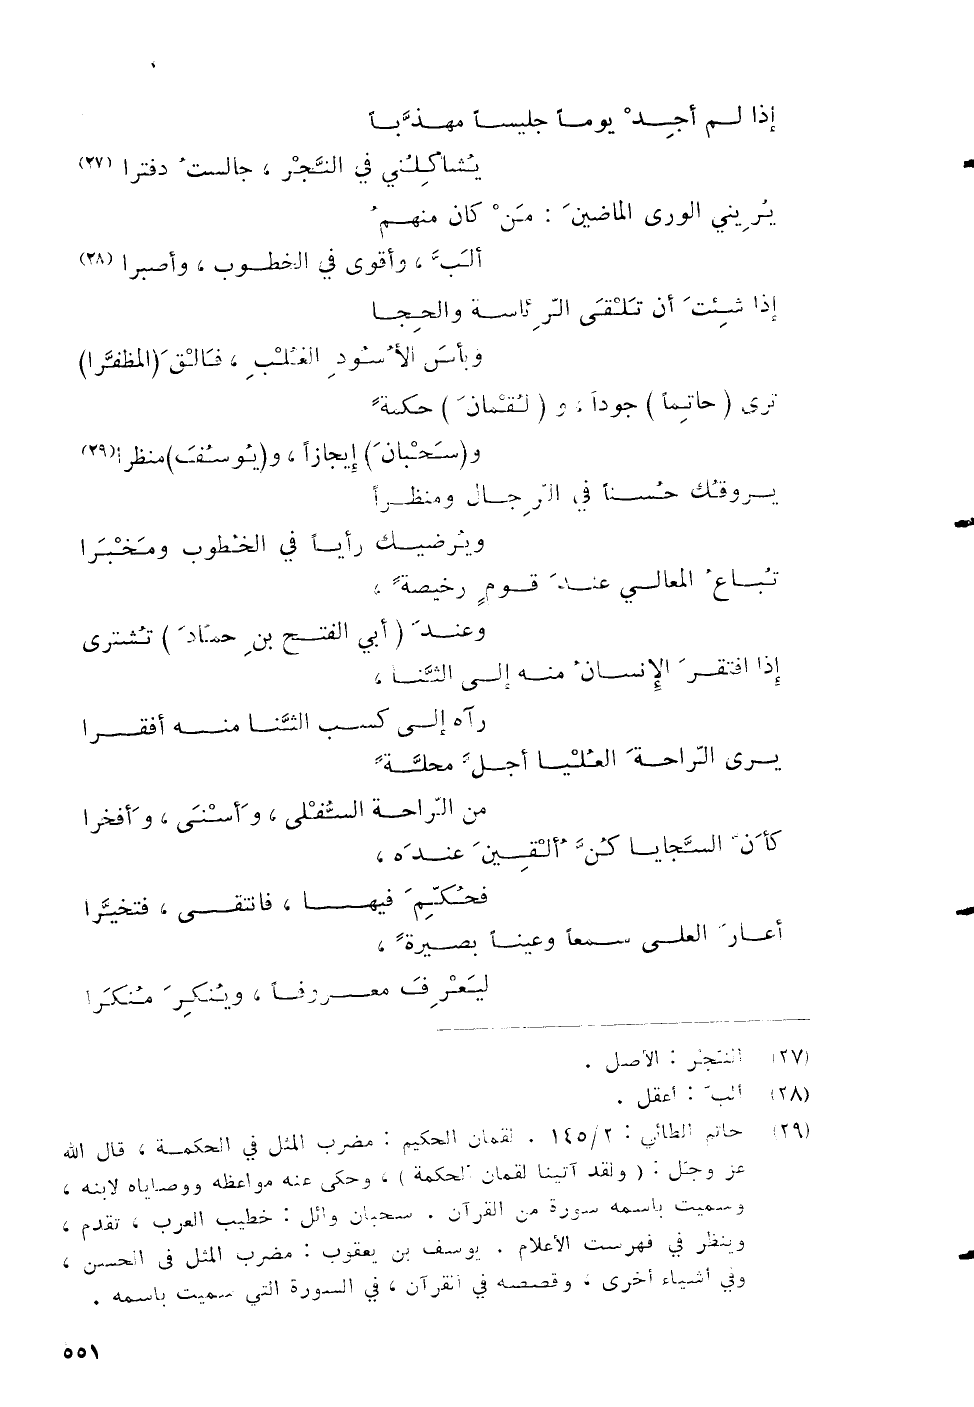 إذا لـم أجِـدْ يومـاً جليسـاً مهـذَّبـاً
يُشاكِلُني في النَّجْر ، جالستُ دفترا (٢٧)
يُرِيني الورى الماضينَ : مَنْ كان منهمُ
ألبَّ ، وأقوى في الخطوب ، وأصبرا (٢٨)
إذا شِئتَ أن تَلْقَى الرِّئاسة والحِجا
وبأسَ الأُسُودِ الغُلْبِ ، فَالْقَ (المظفَّرا)
ترى ( حاتِماً ) جوداً ، و ( لُقْمانَ ) حكمةً
و(سَحْبانَ) إيجازاً ، و(يُوسُفَ)منظرا(٢٩)
يروقُك حُسناً في الرِّجال ومنظراً
ويُرضيك رأياً في الخُطوب ومَخْبَرا
تُباعُ المعالي عندَ قومٍ رخيصةً ،
وعندَ ( أبي الفتح بنِ حمّادَ ) تُشترى
إذا افتقرَ الإِنسانُ منه إلى الثَّنا ،
رآه إلى كسب الثَّنا منه أفقرا
يرى الرّاحةَ العُلْيا أجلَّ محلَّةً
من الرّاحة السُّفْلى ، وَأسْنَى ، وَأفخرا
كأَنَّ السَّجايا كُنَّ أُلْقِينَ عندَه ،
فحُكِّمَ فيها ، فانتقى ، فتخيَّرا
أعارَ العلى سمعاً وعيناً بصيرةً ،
ليَعْرِفَ معروفاً ، ويُنكِرَ مُنكَرا
(٢٧) النَّجْر : الأصل .
(٢٨) ألبَّ : أعقل .
(٢٩) حاتم الطائي : ١٤٥/٢ . لقمان الحكيم : مضرب المثل في الحكمة ، قال الله
عز وجل : ( ولقد آتينا لقمان الحكمة ) ، وحكى عنه مواعظه ووصاياه لابنه ،
وسميت باسمه سورة من القرآن . سحبان وائل : خطيب العرب ، تقدم ،
وينظر في فهرست الأعلام . يوسف بن يعقوب : مضرب المثل في الحسن ،
وفي أشياء أخرى ، وقصصه في القرآن ، في السورة التي سميت باسمه .
٥٥١